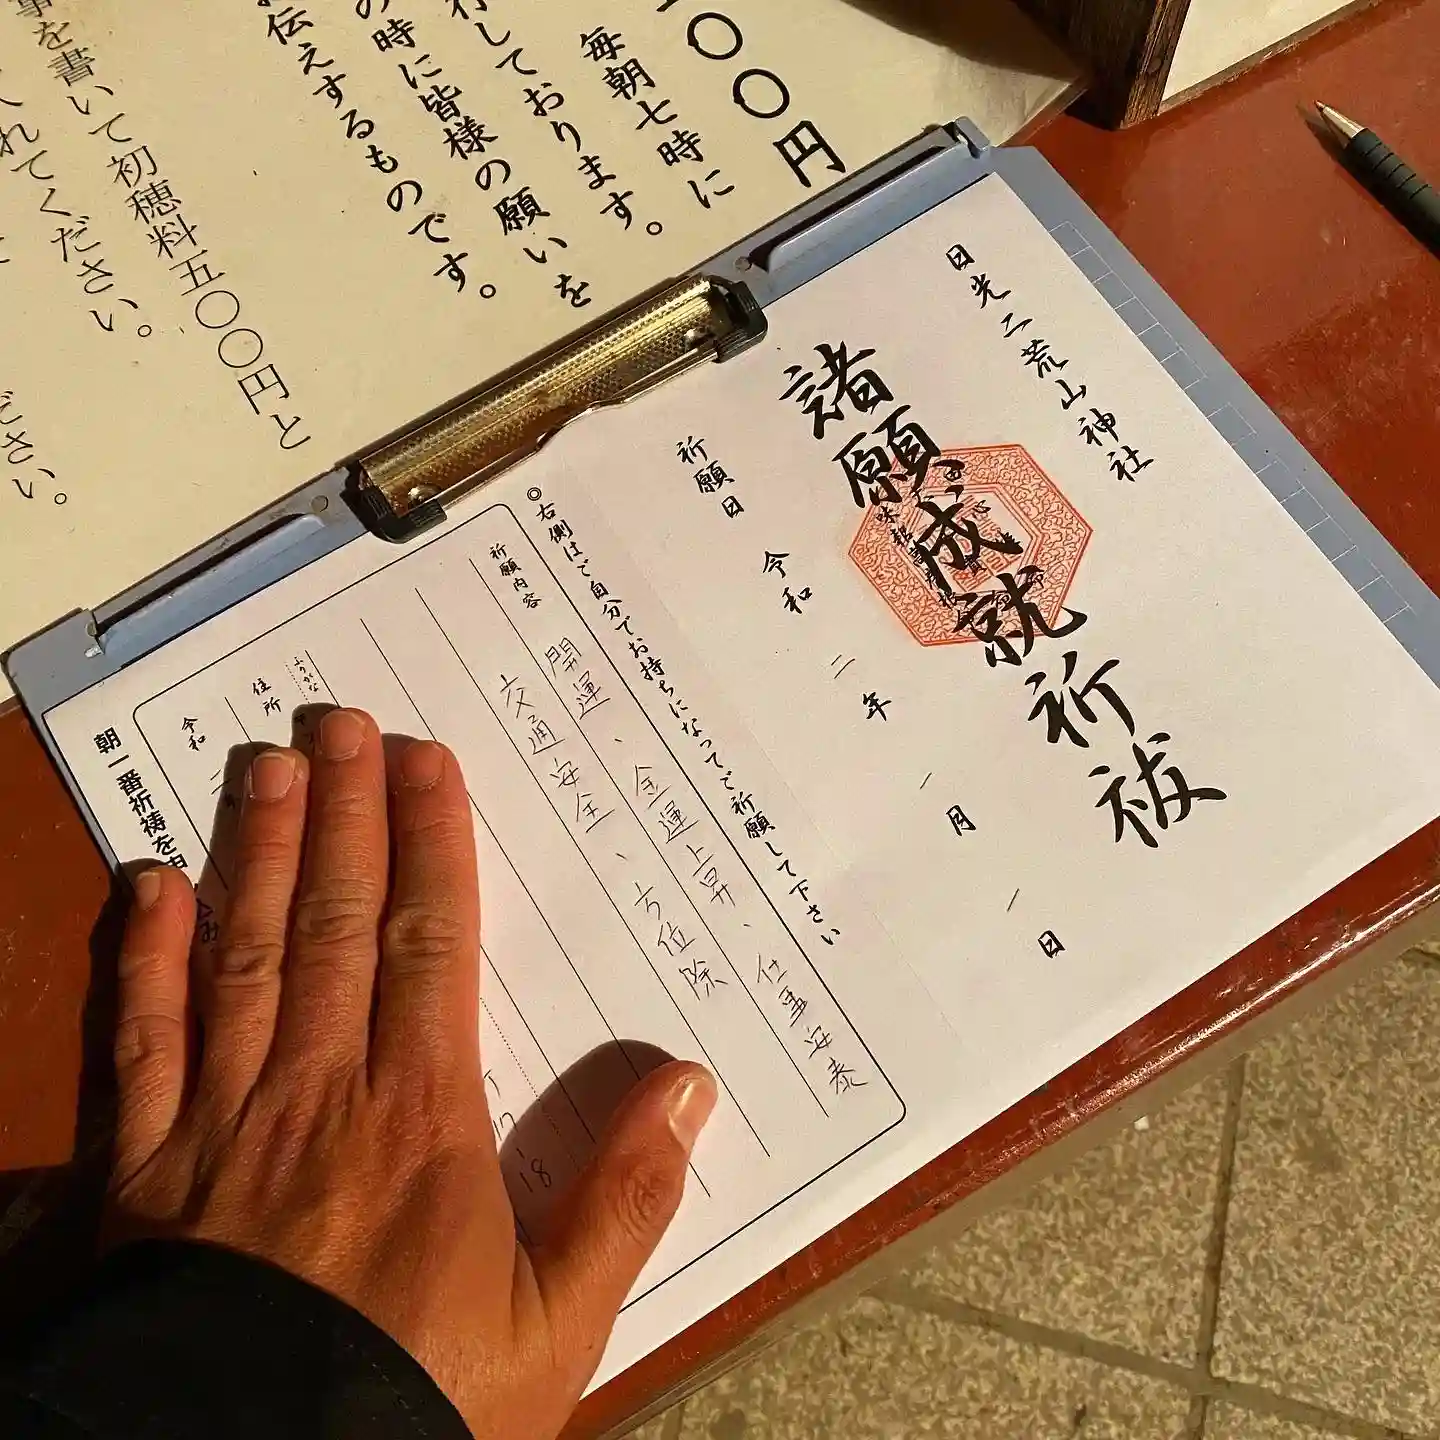 〇〇円
毎朝七時に
行しております。
の時に皆様の願いを
お伝えするものです。
事を書いて初穂料五〇〇円と
れてください。
ださい。
日光二荒山神社
諸願成就祈祓
祈願日 令和 二年 一月 一日
◎右側はご自分でお持ちになってご祈願して下さい
祈願内容
開運、金運上昇、仕事安泰
交通安全、方位除
ふりがな
住所
18
令和 二年
朝一番祈祷を申込み